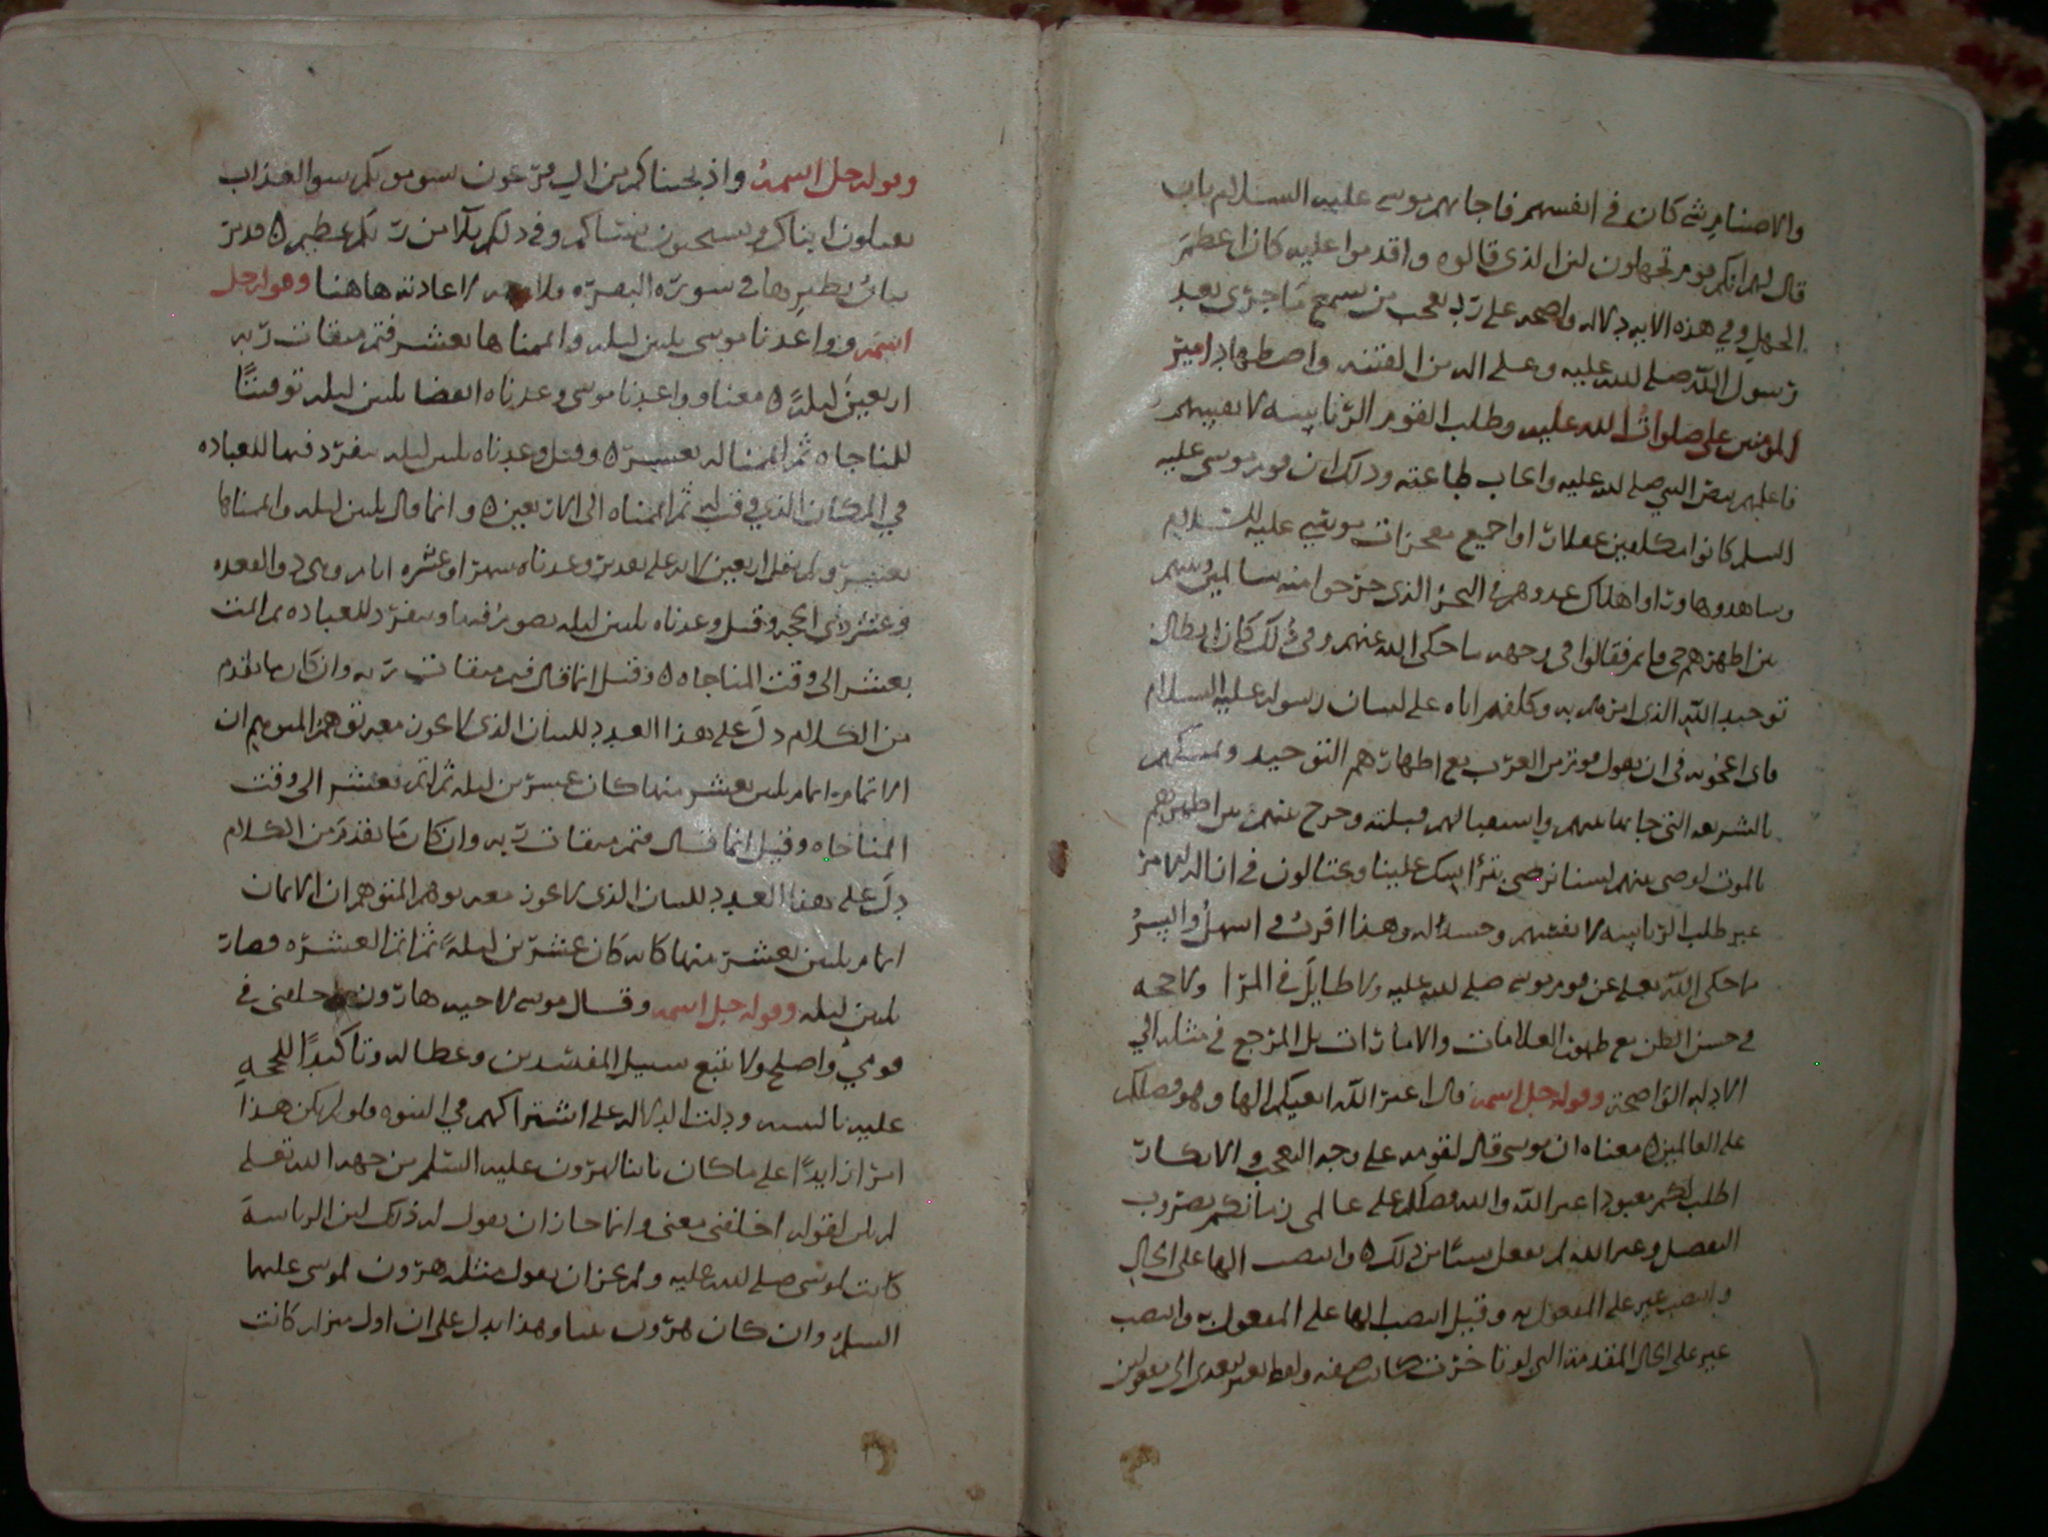 والاصنام شي كان في انفسهم فاجابهم موسى عليه السلام بان
قال لهم انكم قوم تجهلون لان الذي قالوه واقدموا عليه كان اعظم
الجهل وفي هذه الايه دلاله واضحه على رد تعجب من سمع ما جرى بعد
رسول الله صلى الله عليه وعلى اله من الفتنه واضطهاد امير
المومنين علي صلوات الله عليه وطلب القوم الرئاسه لانفسهم
فاعلمهم بنص النبي صلى الله عليه وايجاب طاعته وذلك ان قوم موسى عليه
السلم كانوا مكلفين عقلا راوا جميع معجزات موسى عليه السلام
وشاهدوها وراوا اهلاك عدوهم في البحر الذي خرجوا منه سالمين وبينهم
من اظهرهم حي قايم فقالوا في وجهه ما حكى الله عنهم وفي ذلك كان ابطال
توحيد الله الذي امرهم به وكلفهم اياه على لسان رسوله عليه السلام
فاي اعجوبه في ان يقول قوم من العرب مع اظهارهم التوحيد وتمسكهم
بالشريعه التي جا بها نبيهم واستقبالهم قبلته وخرج عنهم من اظهرهم
بالموت لوصي بينهم لسنا نرضى بتراسك علينا ويحتالون في ازالة الامر
عنه طلب الرئاسه لانفسهم وحسدا له وهذا اقرب واسهل وايسر
ما حكى الله تعالى عن قوم موسى صلى الله عليه ولا طايل في المرا ولا حجه
في حسن الظن مع ظهور العلامات والامارات بل المرجع في مثله الى
الادله الواضحة وقوله جل اسمه قال اغير الله ابغيكم الها وهو فضلكم
على العالمين ه معناه ان موسى قال لقومه على وجه التعجب والانكار
اطلب لكم معبودا غير الله والله فضلكم على عالمي زمانكم بضروب
التفضل وغير الله لم يفعل شيئا من ذلك ه وانتصب الها على الحال
وانتصب غير على المفعول به وقيل انتصب الها على المفعول به وانتصب
غير على الحال المقدمة التي لو تاخرت كانت صفه ولفظ بغير يتعدى الى مفعولين
وقوله جل اسمه واذ انجيناكم من ال فرعون يسومونكم سو العذاب
يقتلون ابناكم ويستحيون نساكم وفي ذلكم بلا من ربكم عظيم ه قد مر
بيان نظيرها في سورة البقره فلا وجه لاعادته هاهنا وقوله جل
اسمه وواعدنا موسى ثلثين ليله واتممناها بعشر فتم ميقات ربه
اربعين ليلة ه معنا وواعدنا موسى وعدناه انقضا ثلثين ليله توقيتا
للمناجاه ثم اتممنا له بعشر ه وقيل وعدناه ثلثين ليله يتفرد فيها للعباده
في المكان الذي وقت له ثم اتممناه الى الاربعين ه وانما قال ثلثين ليله واتممناها
بعشر ولم يقل اربعين لانه على تقدير وعدناه شهرا وعشره ايام وهي ذو القعده
وعشر ذي الحجه وقيل وعدناه ثلثين ليله يصوم فيها ويتفرد للعباده ثم اتمت
بعشر الى وقت المناجاه ه وقيل انما قال فتم ميقات ربه وان كان ما تقدم
من الكلام دل على هذا العدد للبيان الذي لا يجوز معه توهم المتوهم ان
الاتمام اتمام ثلثين بعشر منها كان عشرين ليله ثم اتم بعشر الى وقت
المناجاه وقيل انما قال فتم ميقات ربه وان كان ما تقدم من الكلام
دل على هذا العدد للبيان الذي لا يجوز معه توهم المتوهم ان الاتمام
اتمام ثلثين بعشر منها كانه كان عشرين ليلة ثم اتم العشره فصار
ثلثين ليله وقوله جل اسمه وقال موسى لاخيه هارون اخلفني في
قومي واصلح ولا تتبع سبيل المفسدين وعظا له وتاكيدا للحجه
عليه ودلت الدلاله على اشتراكهم في النبوه فلو لم يكن هذا
امرا زايدا على ما كان ثابتا لهرون عليه السلم من جهة الله تعالى
لم يكن لقوله اخلفني معنى وانما جاز ان يقول له ذلك لان الرياسة
كانت لموسى صلى الله عليه ولم يجز ان يقول مثله هرون لموسى عليهما
السلم وان كان هرون نبيا وهذا يدل على ان اول منزله كانت